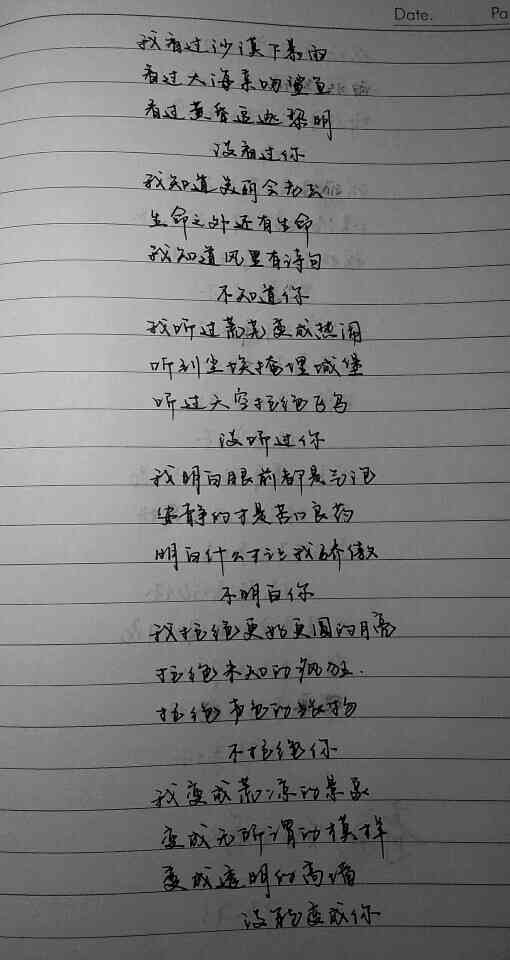 Date.
Pa
我看过沙漠下暴雨
看过大海亲吻鲨鱼
看过黄昏追逐黎明
没看过你
我知道美丽会老去
生命之外还有生命
我知道风里有诗句
不知道你
我听过荒芜变成热闹
听到尘埃掩埋城堡
听过天空拒绝飞鸟
没听过你
我明白眼前都是气泡
安静的才是苦口良药
明白什么才让我骄傲
不明白你
我拒绝更好更圆的月亮
拒绝未知的疯狂.
拒绝声色的张扬
不拒绝你
我变成荒凉的景象
变成无所谓的模样
变成透明的高墙
没能变成你